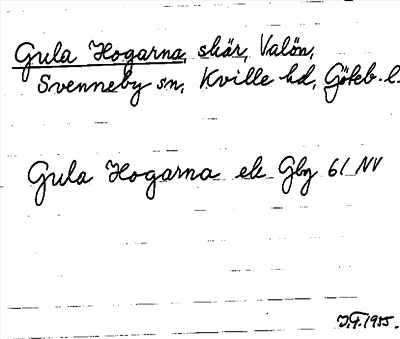 Gula Hogarna, skär, Valön,
Svenneby sn, Kville hd, Göteb. l.
Gula Hogarna ek Gbg 61 NV
1955.